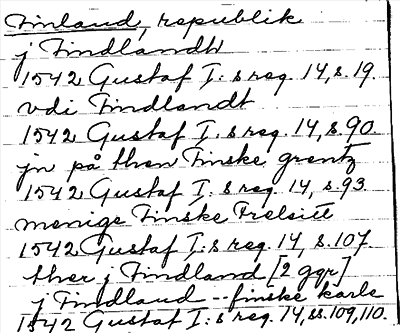 Finland, republik
j Findlandh
1542 Gustaf I:s reg. 14, s. 19.
vdi Findlandt
1542 Gustaf I:s reg. 14, s. 90.
jn på then Finske grentz
1542 Gustaf I:s reg. 14, s. 93.
menige Finske Frelsitt
1542 Gustaf I:s reg. 14, s. 107.
ther j Findland [2 ggr]
j Findland -- finske karle
1542 Gustaf I:s reg. 14, ss. 109, 110.